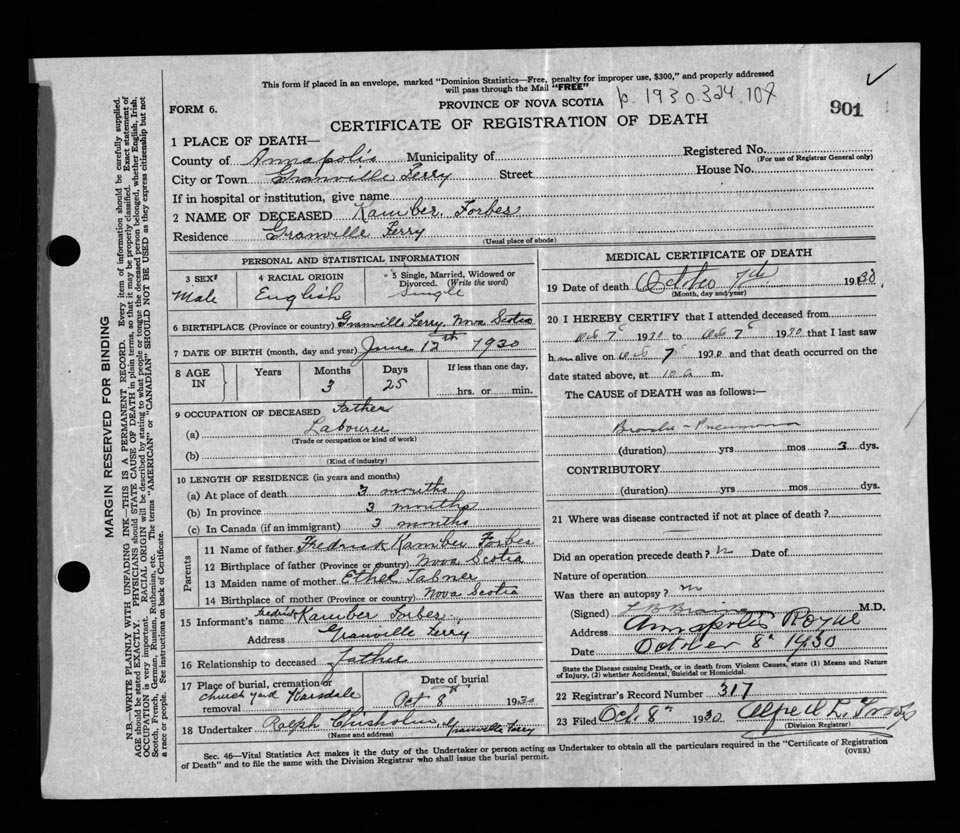 This form if placed in an envelope, marked "Dominion Statistics—Free, penalty for improper use, $300," and properly addressed
will pass through the Mail "FREE"
PROVINCE OF NOVA SCOTIA p. 1930.324.107
FORM 6. 901
CERTIFICATE OF REGISTRATION OF DEATH
1 PLACE OF DEATH—
County of Annapolis Municipality of Registered No.
(For use of Registrar General only)
City or Town Granville Ferry Street House No.
If in hospital or institution, give name
2 NAME OF DECEASED Kamber Forbes
Residence Granville Ferry
(Usual place of abode)
PERSONAL AND STATISTICAL INFORMATION
3 SEX 4 RACIAL ORIGIN 5 Single, Married, Widowed or Divorced. (Write the word)
Male English Single
6 BIRTHPLACE (Province or country) Granville Ferry, Nova Scotia
7 DATE OF BIRTH (month, day and year) June 12th 1930
8 AGE IN Years Months Days If less than one day,
3 25 hrs. or min.
9 OCCUPATION OF DECEASED Father
(a) Labourer
(Trade or occupation or kind of work)
(b)
(Kind of industry)
10 LENGTH OF RESIDENCE (in years and months)
(a) At place of death 3 months
(b) In province 3 months
(c) In Canada (if an immigrant) 3 months
Parents
11 Name of father Fredrick Kamber Forbes
12 Birthplace of father (Province or country) Nova Scotia
13 Maiden name of mother Ethel Tabner
14 Birthplace of mother (Province or country) Nova Scotia
15 Informant's name Fredrick Kamber Forbes
Address Granville Ferry
16 Relationship to deceased Father
17 Place of burial, cremation or removal Church yard Karsdale Date of burial Oct 8th 1930
18 Undertaker Ralph Chisholm, Granville Ferry
(Name and address)
MEDICAL CERTIFICATE OF DEATH
19 Date of death October 7th 1930
(Month, day and year)
20 I HEREBY CERTIFY that I attended deceased from
Oct 7 1930 to Oct 7 1930 that I last saw
h im alive on Oct 7 1930 and that death occurred on the
date stated above, at 10 a m.
The CAUSE of DEATH was as follows:—
Broncho-Pneumonia
(duration) yrs mos 3 dys.
CONTRIBUTORY
(duration) yrs mos dys.
21 Where was disease contracted if not at place of death?
Did an operation precede death? no Date of
Nature of operation
Was there an autopsy? no
(Signed) M.D.
Address Annapolis Royal
Date October 8th 1930
State the Disease causing Death, or in death from Violent Causes, state (1) Means and Nature
of Injury, (2) whether Accidental, Suicidal or Homicidal.
22 Registrar's Record Number 317
23 Filed Oct. 8th 1930 Alfred L.
(Division Registrar)
Sec. 46—Vital Statistics Act makes it the duty of the Undertaker or person acting as Undertaker to obtain all the particulars required in the "Certificate of Registration
of Death" and to file the same with the Division Registrar who shall issue the burial permit. (OVER)
MARGIN RESERVED FOR BINDING
N.B.—WRITE PLAINLY WITH UNFADING INK—THIS IS A PERMANENT RECORD. Every item of information should be carefully supplied.
AGE should be stated EXACTLY. PHYSICIANS should STATE CAUSE OF DEATH in plain terms, so that it may be properly classified. Exact statement of
OCCUPATION is very important. RACIAL ORIGIN will be described by stating to what people or tongue the deceased person belonged, whether English, Irish,
Scotch, French, German, Russian, Ruthenian, etc. The terms "AMERICAN" or "CANADIAN" SHOULD NOT BE USED as they express citizenship but not
a race or people. See instructions on back of Certificate.